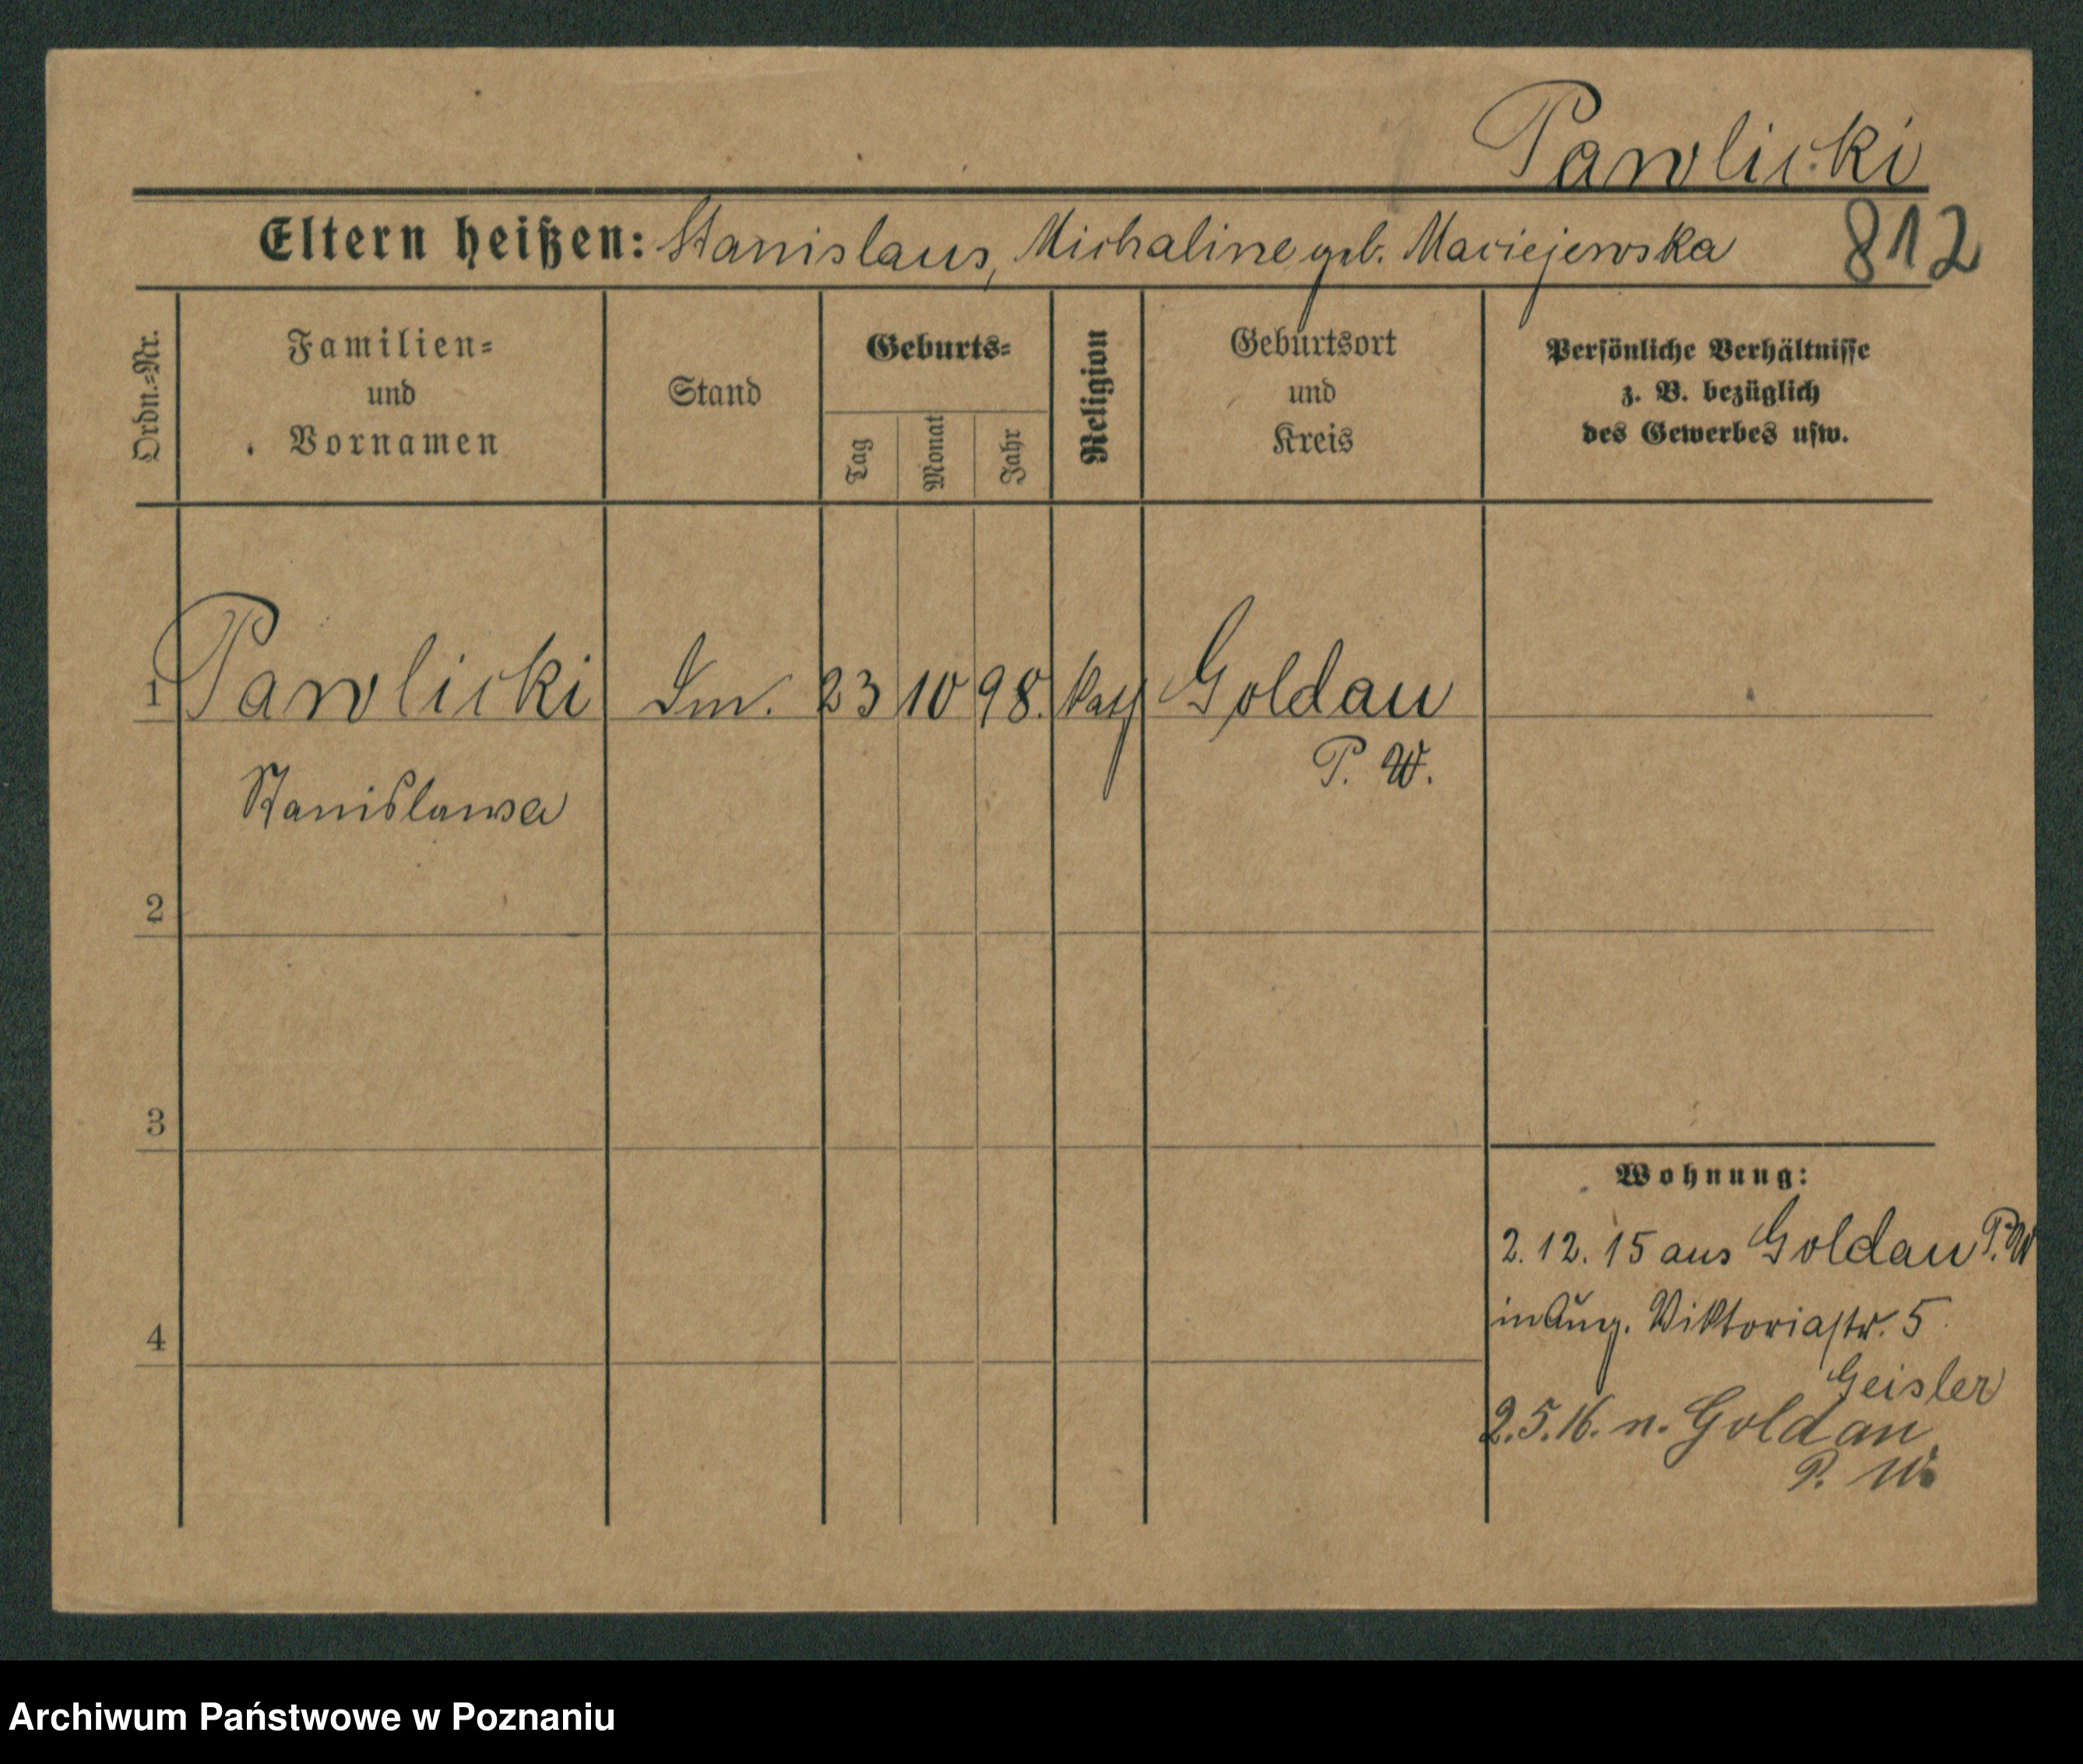 Pawlicki
Eltern heißen: Stanislaus, Michaline geb. Maciejewska 812
Ordn.=Nr.
Familien=
und
Vornamen
Stand
Geburts=
Tag
Monat
Jahr
Religion
Geburtsort
und
Kreis
Persönliche Verhältnisse
z. B. bezüglich
des Gewerbes usw.
1 Pawlicki 23 10 98. kath Goldau
Stanislawa P. W.
2
3
Wohnung:
2. 12. 15 aus Goldau P. W
in Aug. Viktoriastr. 5
4
Geisler
2. 5. 16. n. Goldau
P. W.
Archiwum Państwowe w Poznaniu